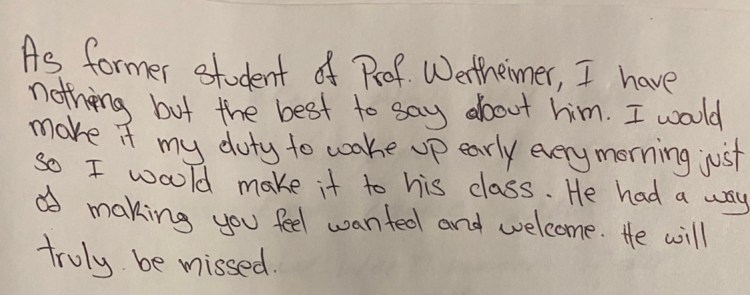 As former student of Prof. Wertheimer, I have
nothing but the best to say about him. I would
make it my duty to wake up early every morning just
so I would make it to his class. He had a way
of making you feel wanted and welcome. He will
truly be missed.